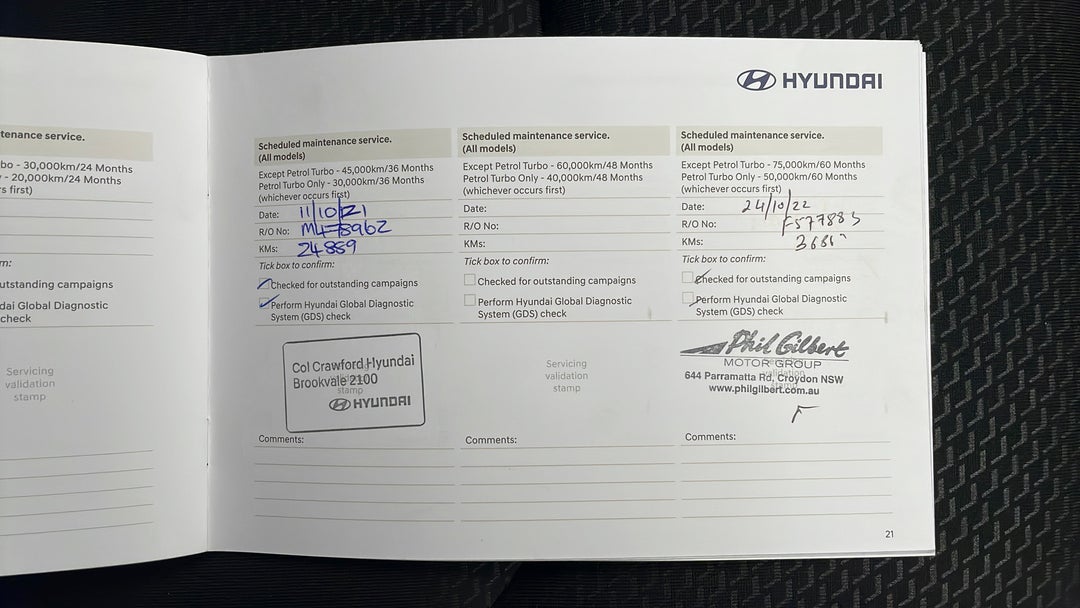 HYUNDAI
tenance service.
bo - 30,000km/24 Months
- 20,000km/24 Months
rs first)
m:
utstanding campaigns
dai Global Diagnostic
check
Servicing
validation
stamp
Scheduled maintenance service.
(All models)
Except Petrol Turbo - 45,000km/36 Months
Petrol Turbo Only - 30,000km/36 Months
(whichever occurs first)
Date: 11/10/21
R/O No:
KMs: 24889
Tick box to confirm:
Checked for outstanding campaigns
Perform Hyundai Global Diagnostic
System (GDS) check
Col Crawford Hyundai
Brookvale 2100
stamp
HYUNDAI
Comments:
Scheduled maintenance service.
(All models)
Except Petrol Turbo - 60,000km/48 Months
Petrol Turbo Only - 40,000km/48 Months
(whichever occurs first)
Date:
R/O No:
KMs:
Tick box to confirm:
Checked for outstanding campaigns
Perform Hyundai Global Diagnostic
System (GDS) check
Servicing
validation
stamp
Comments:
Scheduled maintenance service.
(All models)
Except Petrol Turbo - 75,000km/60 Months
Petrol Turbo Only - 50,000km/60 Months
(whichever occurs first)
Date: 24/10/22
R/O No:
KMs:
Tick box to confirm:
Checked for outstanding campaigns
Perform Hyundai Global Diagnostic
System (GDS) check
Phil Gilbert
MOTOR GROUP
644 Parramatta Rd, Croydon NSW
www.philgilbert.com.au
Comments:
21